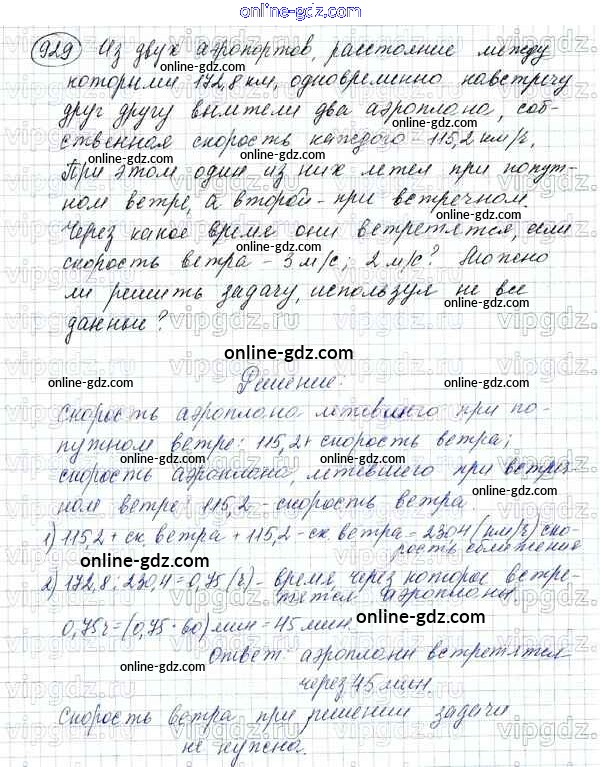 online-gdz.com
929 Из двух аэропортов, расстояние между
которыми 172,8 км, одновременно навстречу
друг другу вылетели два аэроплана, соб-
ственная скорость каждого - 115,2 км/ч.
При этом один из них летел при попут-
ном ветре, а второй - при встречном.
Через какое время они встретятся, если
скорость ветра - 3 м/с; 2 м/с? Можно
ли решить задачу, используя не все
данные?
online-gdz.com
Решение:
Скорость аэроплана летевшего при по-
путном ветре: 115,2 + скорость ветра;
скорость аэроплана, летевшего при встреч-
ном ветре: 115,2 - скорость ветра.
1) 115,2 + ск. ветра + 115,2 - ск. ветра = 230,4 (км/ч) ско-
рость сближения
online-gdz.com
2) 172,8 : 230,4 = 0,75 (ч) - время, через которое встре-
тятся аэропланы.
0,75 ч = (0,75 · 60) мин = 45 мин.
Ответ: аэропланы встретятся
через 45 мин.
Скорость ветра при решении задачи
не нужна.
vipgdz.ru